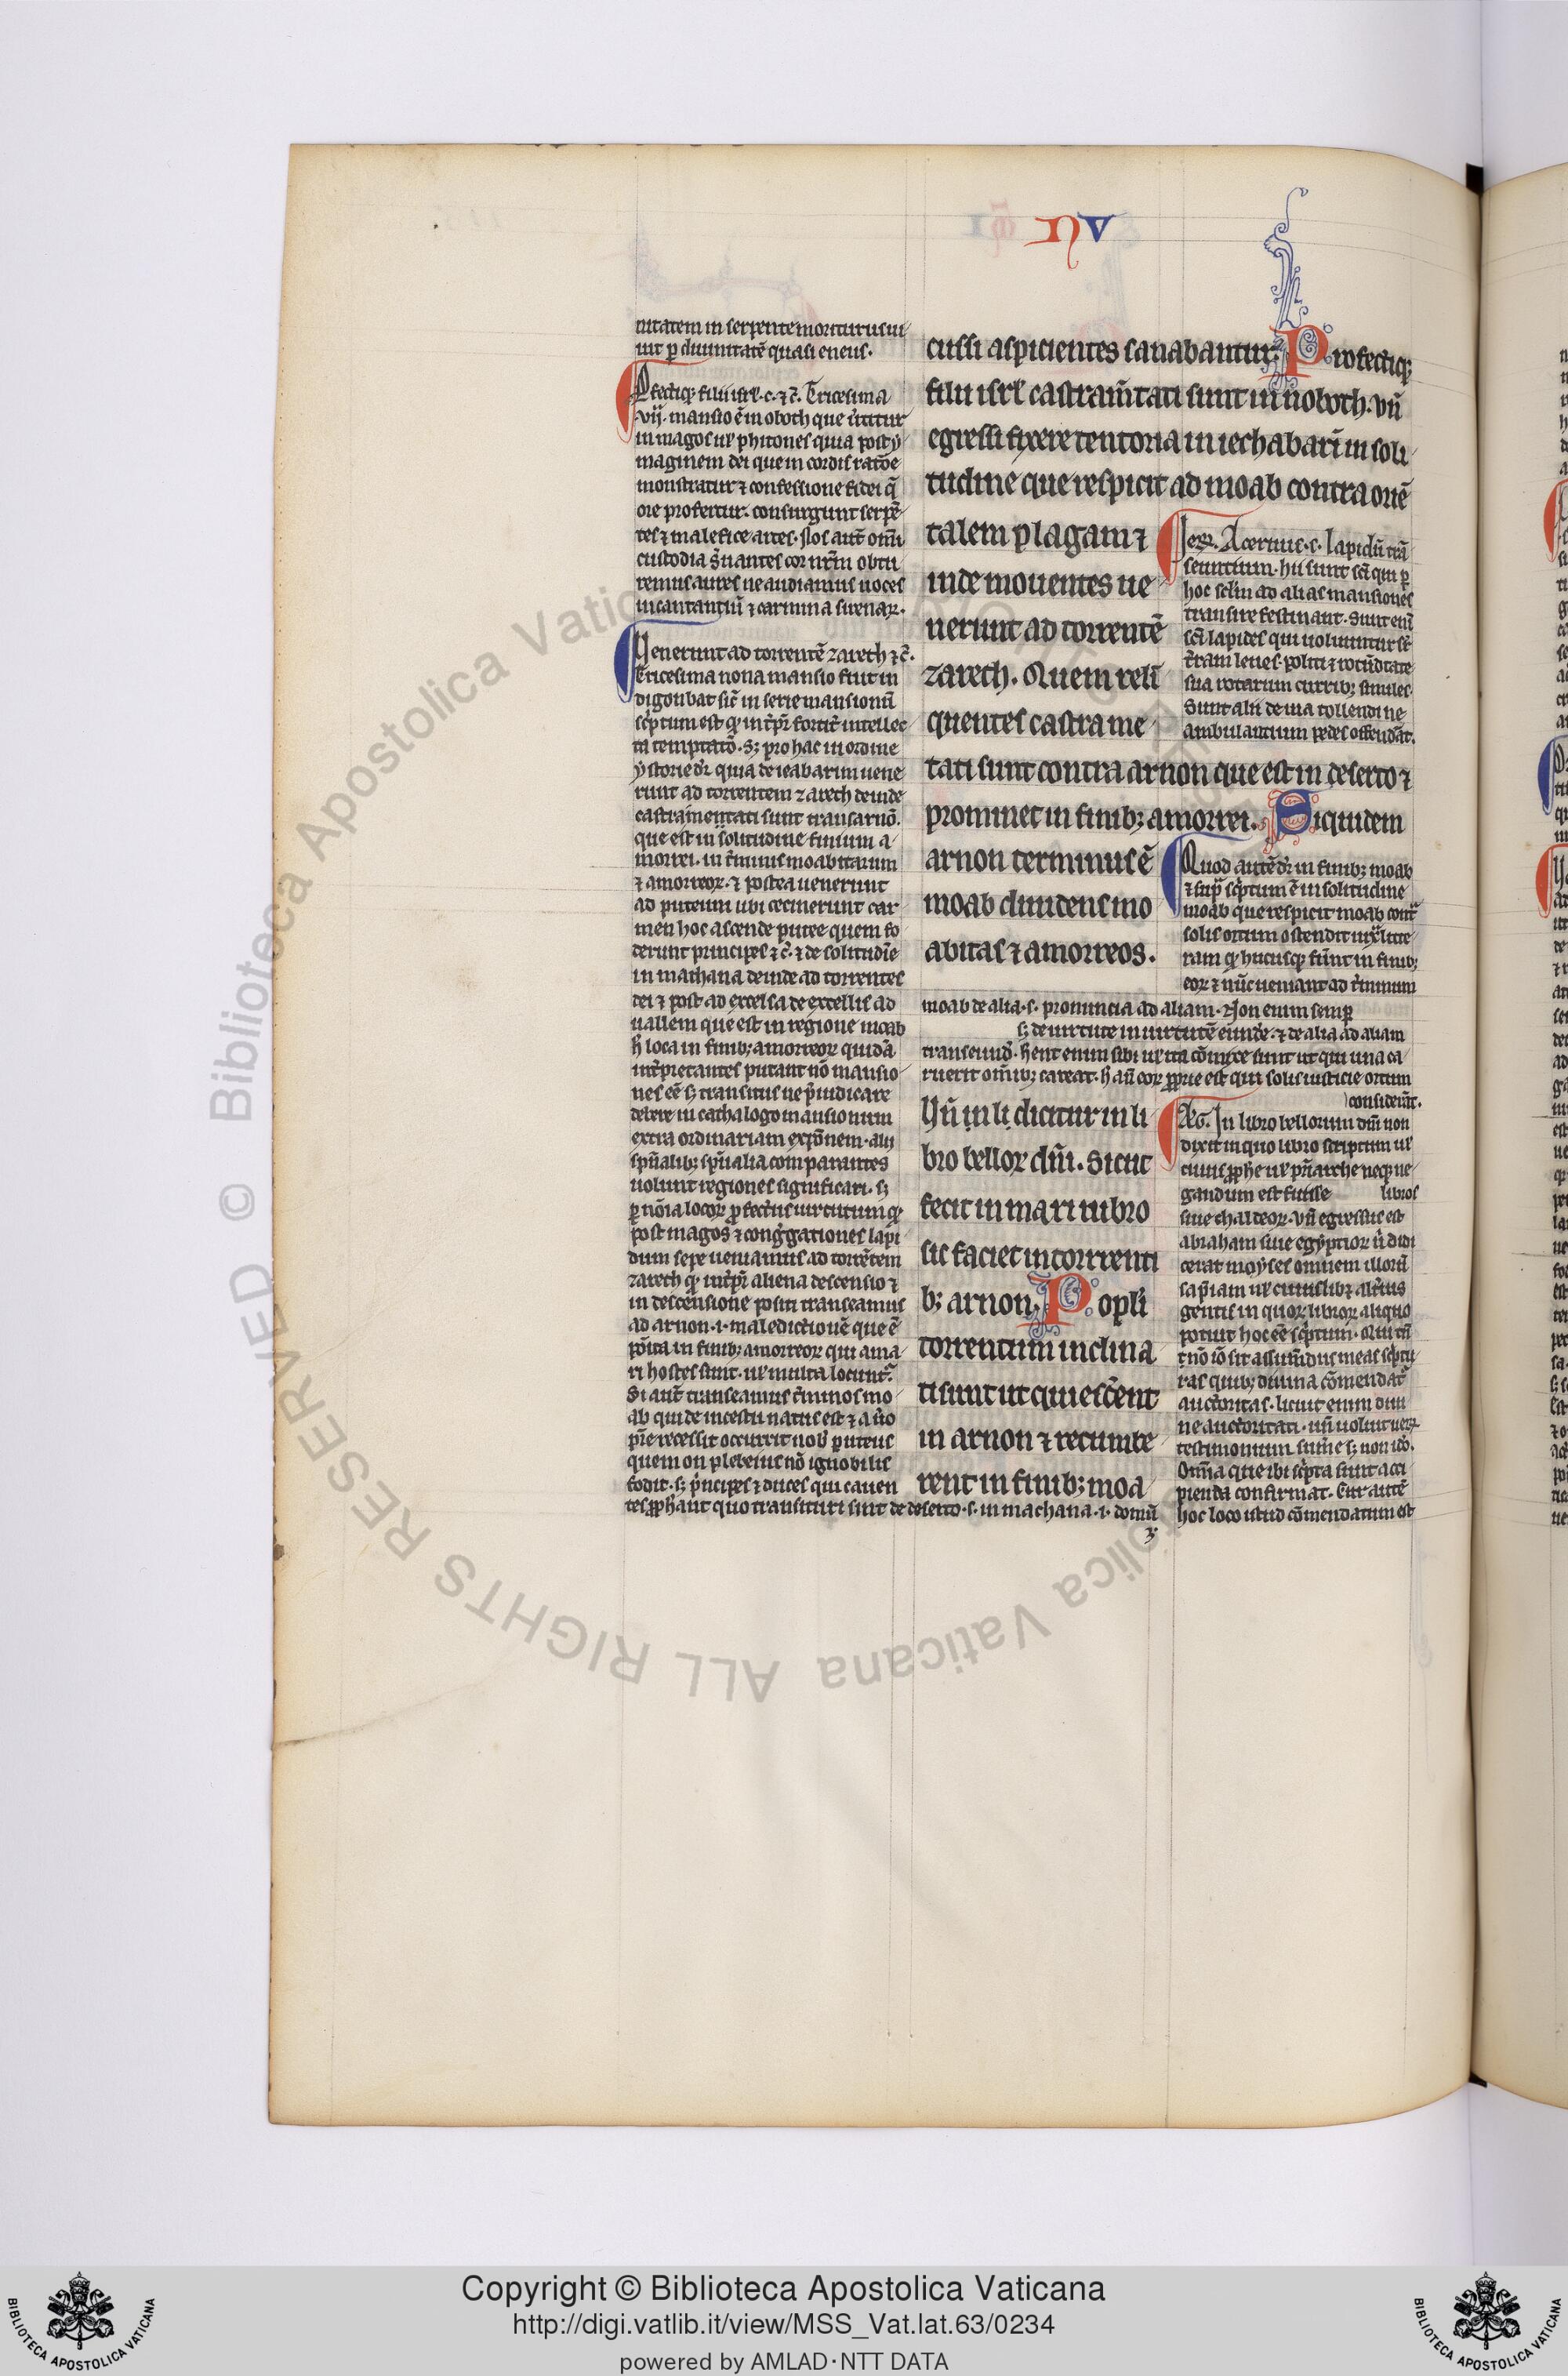 NV
nitatem in serpente moriturus ui
uit p̱ diuinitatē quasi eneus.
Pfectiqꝫ filii isrł .c. ⁊ c̄. Tricesima
.vij. mansio ē in oboth que ūtitur
in magos uł phitones quia post y
maginem dei que in cordis ratōe
monstratur ⁊ confessione fidei q̄
ore profertur. consurgunt serpē
tes ⁊ malefice artes. Nos aut̄ om̄i
custodia s̄uantes cor nr̄m obtu
remus aures ne audiamus uoces
incantantiū ⁊ carmina sirenaꝝ.
Uenerunt ad torrentē zareth ⁊ c̄.
Tricesima nona mansio fuit in
digonbat sic̄ in serie mansionū
sc̄ptum est
in t̄p̄r fortit̄ intellec
ta temptatō. sꝫ pro hac in ordine
ystorie dr̄ quia de ieabarim uene
runt ad torrentem zareth deinde
castrametati sunt trans arnō.
que est in solitudine finium a
morrei. in t̄minis moabitarum
⁊ amorreoꝝ. ⁊ postea uenerunt
ad puteum ubi cecinerunt car
men hoc ascende putee quem fo
derunt principes ⁊ c̄. ⁊ de solitudīe
in mathana deinde ad torrentes
dei ⁊ post ad excelsa de excellis ad
uallem que est in regione moab
h̄ loca in finibꝫ amorreoꝝ quidā
int̄pretantes putant nō mansio
nes eē sꝫ transitus ne p̄iudicare
debere in cathalogo mansionum
extra ordinariam exp̄onem. alii
sp̄ualibꝫ sp̄ualia comparantes
uolunt regiones significari. sꝫ
p̱ nōia locoꝝ ꝓfectus uirtutum
post magos ⁊ conḡgationes lapi
dum sepe ueniamus ad torrētem
zareth
int̄p̄r aliena descensio ⁊
in descensione positi transeamus
ad arnon .i. maledictionē que ē
po̅ita in finibꝫ amorreoꝝ qui ama
ri hostes sunt. uł multa locunt̄.
Si aut̄ transeamus t̄minos mo
ab qui de incestu natus est ⁊ a u̅o
pr̄e recessit occurrit nob̄ puteus
quem non plebeius nō ignobilis
fodit. sꝫ p̄ncipes ⁊ duces qui cauen
tes ꝓphant quo transituri sint de deserto .s. in mathana .i. domū
cussi aspicientes sanabantur. Profectiqꝫ
filii isrł castram̄tati sunt in noboth. vn̄
egressi fixere tentoria in iechabarī in soli
tudine que respicit ad moab contra oriē
talem plagam ⁊
inde mouentes ue
nerunt ad torrentē
zareth. Quem reli̅
quentes castrame
tati sunt contra arnon que est in deserto ⁊
prominet in finibꝫ amorrei. Siquidem
arnon terminus ē
moab diuidens mo
abitas ⁊ amorreos.
Jeꝝ. Aceruus .s. lapidū trā
seuntium. hii sunt sc̄i qui p̱
hoc sclm̄ ad alias mansiones
transire festinant. Sunt eni̅
sc̄i lapides qui uoluuntur sr̄
t̄ram leues. politi ⁊ rotūditate
sua rotarum curribꝫ similes.
Sunt alii de uia tollendi ne
ambulantium pedes offendāt.
Quod autē dr̄ in finibꝫ moab
⁊ supᷓ sc̄ptum ē in solitudine
moab que respicit moab cont̄
solis ortum ostendit iuxᵃ litte
ram
hucusqꝫ fūnt in finibꝫ
eoꝝ ⁊ nūc ueniant ad t̄minum
moab de alia .s. prouincia ad aliam. Non enim semp̱
sꝫ de uirtute in uirtutē eundē. ⁊ de alia ad aliam
transeund̄. Hent enim sibi uł ita cōnixe sunt ut qui una ca
ruerit om̄ibꝫ careat. h̄ aū eoꝝ ꝓprie est qui solis iusticie ortum
considerāt.
Un̄ in li dicitur in li
bro belloꝝ dn̄i. Sicut
fecit in mari rubro
sic faciet in torrrenti
bꝫ arnon. Scopli
torrentum inclina
ti sunt ut quiescēent
in arnon ⁊ recumbe
rent in finibꝫ moa
Aug. In libro bellorum dn̄i non
dixit in quo libro scriptum uł
cuius ꝓphe uł pr̄iarche neqꝫ ne
gandum est fuisse libros
siue chaldeoꝝ. vn̄ egressus est
abraham siue egyptioꝝ ū didi
cerat moyses omnem illorū
sap̄iam uł cuiuslibꝫ alt̄ius
gentis in quoꝝ libroꝝ aliquo
potuit hoc eē sc̄ptum. Qui tn̄
nō io̅ sit assum̄dus in eas sc̄ptu
ras quibꝫ diuina cōmendat̄
auctoritas.
ne auctoritati.
testimonium sume sꝫ non
Om̄ia que ibi sc̄pta sunt acci
pienda confirmat. Cur autē
hoc loco istud cōmendatum est
© Biblioteca Apostolica Vaticana ALL RIGHTS RESERVED
Copyright © Biblioteca Apostolica Vaticana
http://digi.vatlib.it/view/MSS_Vat.lat.63/0234
powered by AMLAD·NTT DATA
BIBLIOTECA APOSTOLICA VATICANA
BIBLIOTECA APOSTOLICA VATICANA